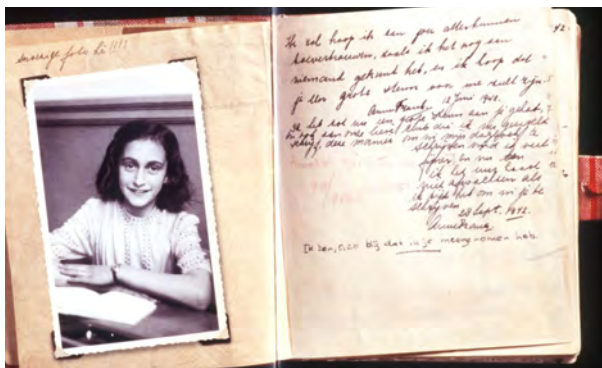 snoezige foto hè!!!!
Ik zal hoop ik aan jou alles kunnen
toevertrouwen, zoals ik het nog aan
niemand gekund heb, en ik hoop dat
je een grote steun voor me zult zijn.
Anne Frank. 12 Juni 1942.
Ik heb tot nu een grote steun aan je gehad,
en ook aan onze lieve club die ik nu geregeld
schrijf, deze manier om in mijn dagboek te
schrijven vind ik veel
fijner en nu kan
ik het uur haast
niet afwachten als
ik tijd heb om in je te
schrijven.
28 Sept. 1942.
Anne Frank
Ik ben, o, zo blij dat ik je meegenomen heb.